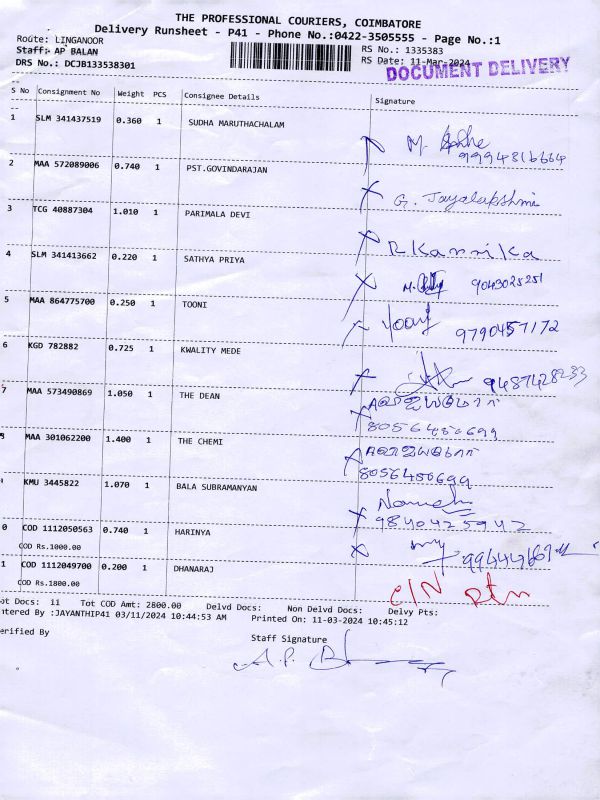 THE PROFESSIONAL COURIERS, COIMBATORE
Delivery Runsheet - P41 - Phone No.:0422-3505555 - Page No.:1
Route: LINGANOOR
RS No.: 1335383
Staff: AP BALAN
RS Date: 11-Mar-2024
DRS No.: DCJB133538301
DOCUMENT DELIVERY
S No Consignment No Weight PCS Consignee Details Signature
1 SLM 341437519 0.360 1 SUDHA MARUTHACHALAM
9994816664
2 MAA 572089006 0.740 1 PST.GOVINDARAJAN
G. Jayalakshmi
3 TCG 40887304 1.010 1 PARIMALA DEVI
R Kannika
4 SLM 341413662 0.220 1 SATHYA PRIYA
9043025251
5 MAA 864775700 0.250 1 TOONI
9790457172
6 KGD 782882 0.725 1 KWALITY MEDE
9487428233
7 MAA 573490869 1.050 1 THE DEAN
8056450699
8 MAA 301062200 1.400 1 THE CHEMI
8056450699
KMU 3445822 1.070 1 BALA SUBRAMANYAN
9840425942
0 COD 1112050563 0.740 1 HARINYA
COD Rs.1000.00
1 COD 1112049700 0.200 1 DHANARAJ
COD Rs.1800.00
C/N rtn
ot Docs: 11 Tot COD Amt: 2800.00 Delvd Docs: Non Delvd Docs: Delvy Pts:
ntered By :JAYANTHIP41 03/11/2024 10:44:53 AM Printed On: 11-03-2024 10:45:12
erified By
Staff Signature